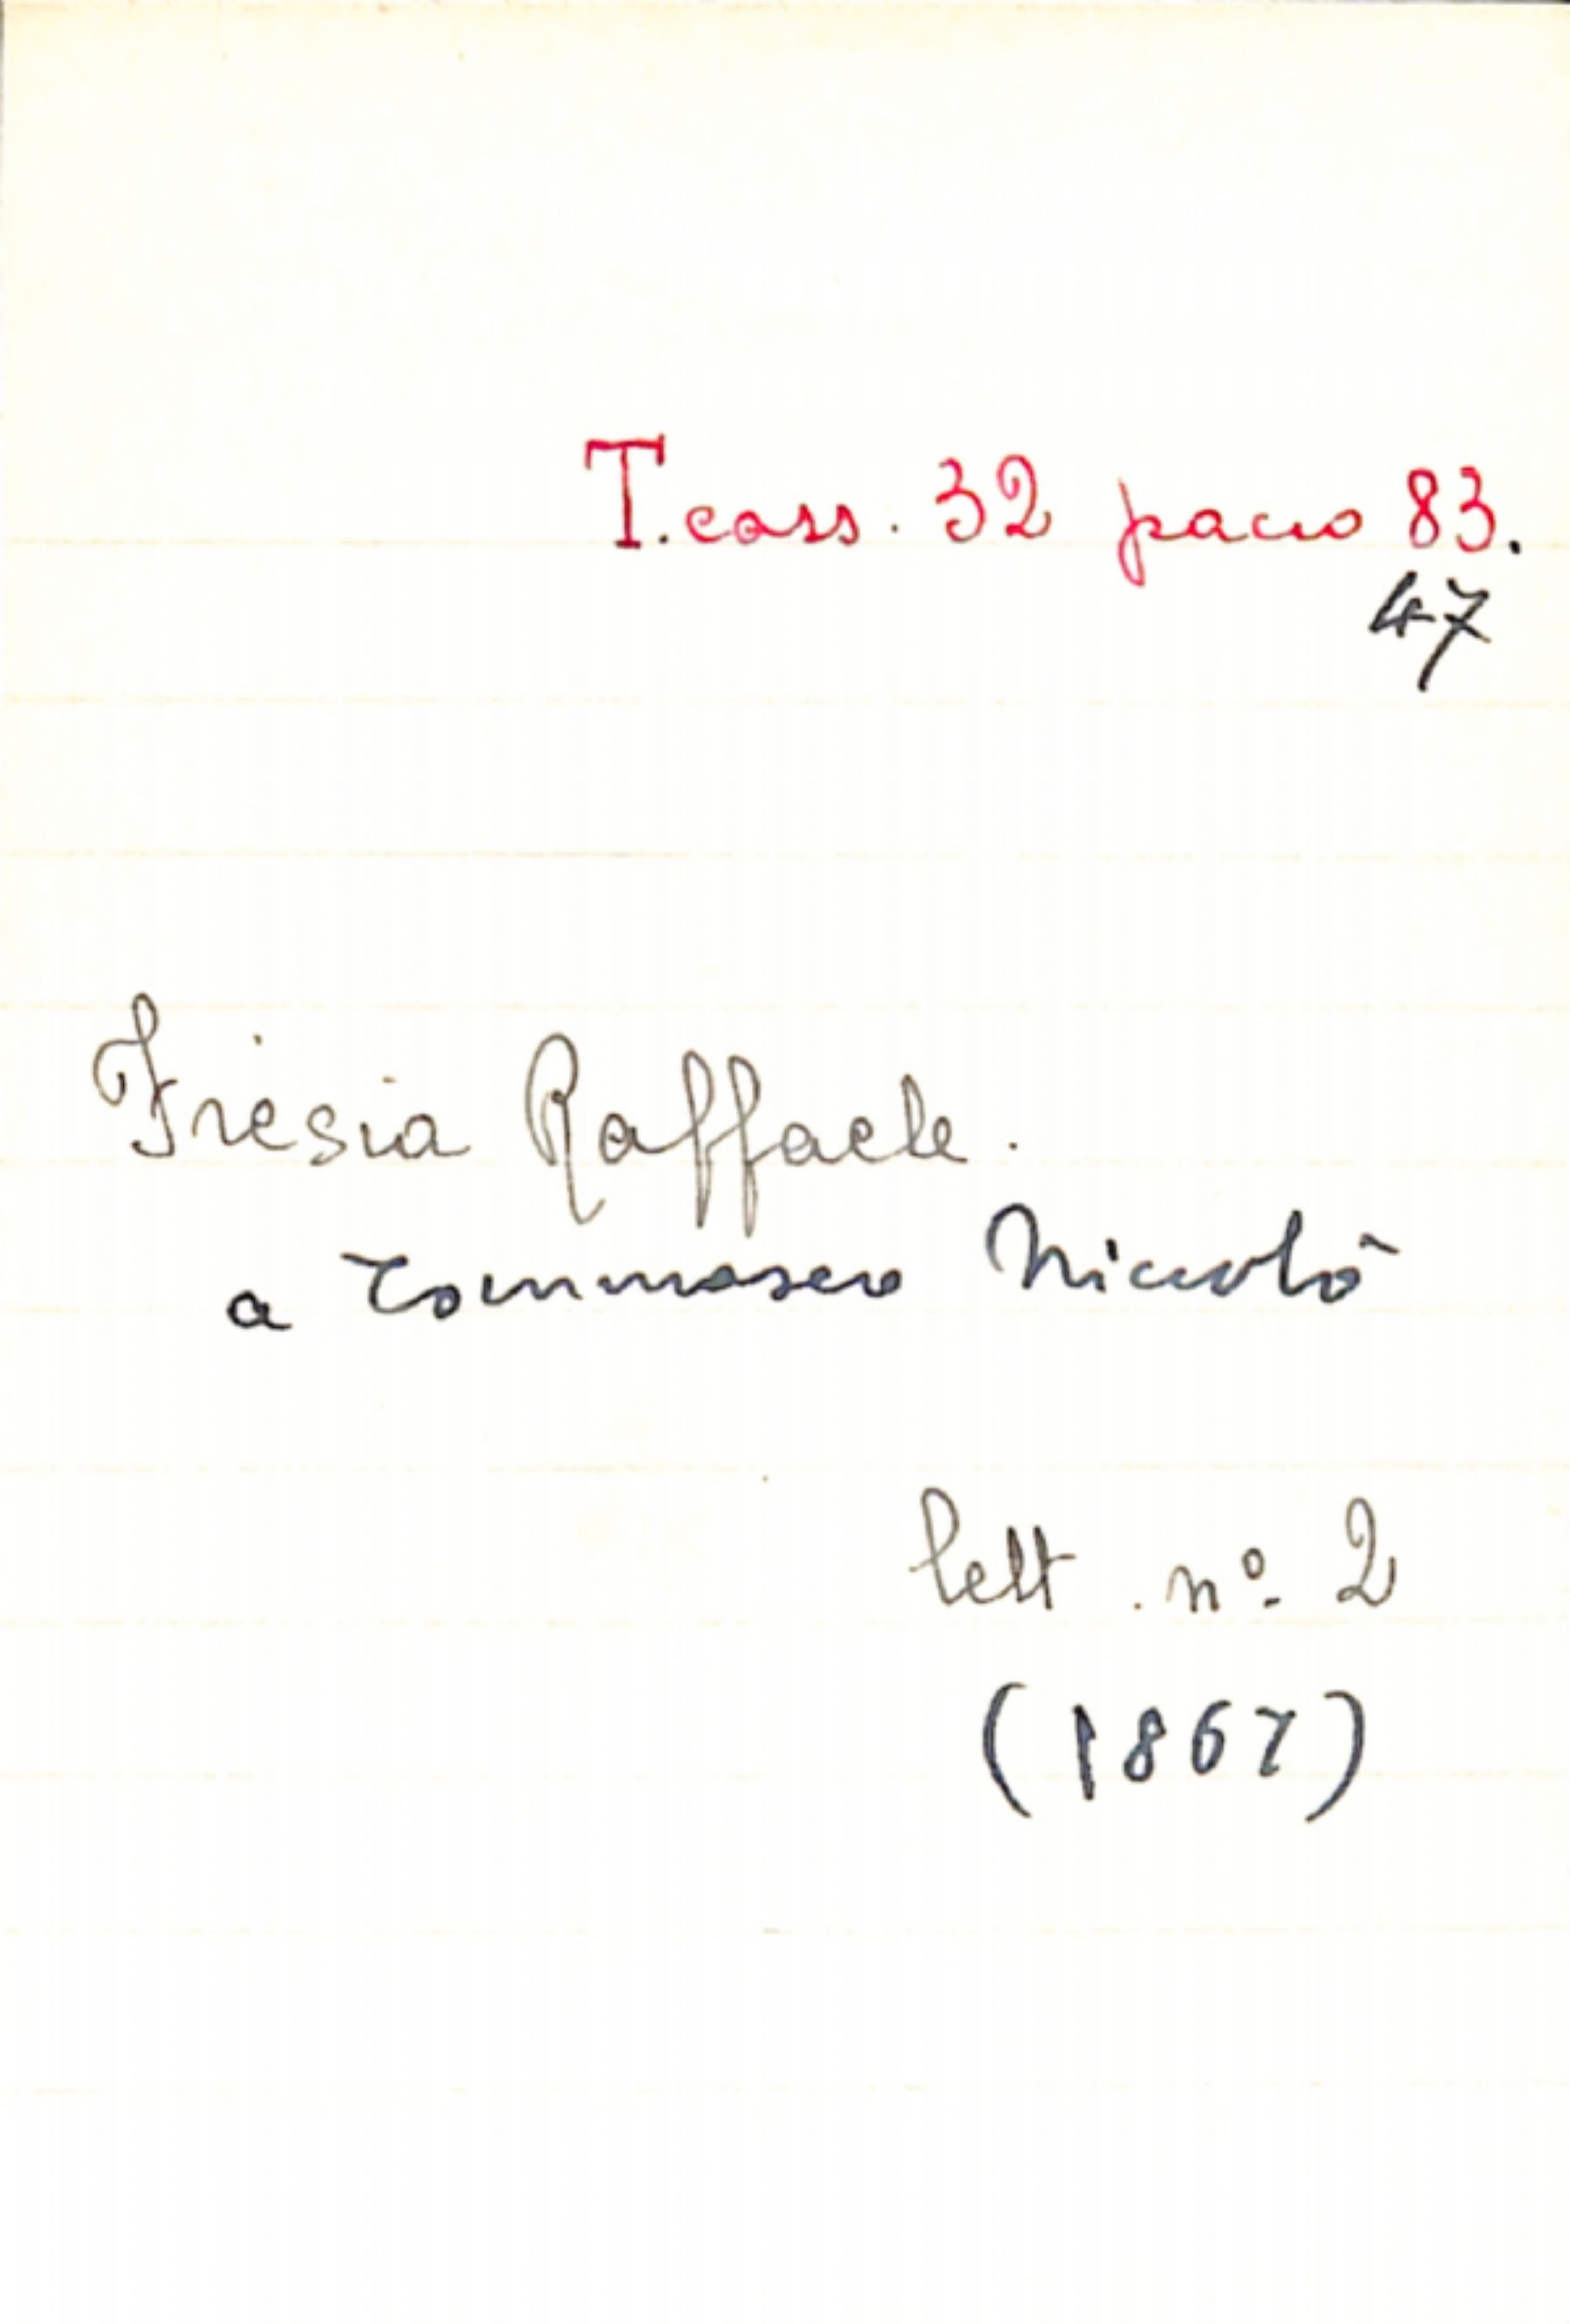 T. cass. 32 pacco 83.
47
Fresia Raffaele.
a Tommaseo Niccolò
lett. nº 2
(1867)